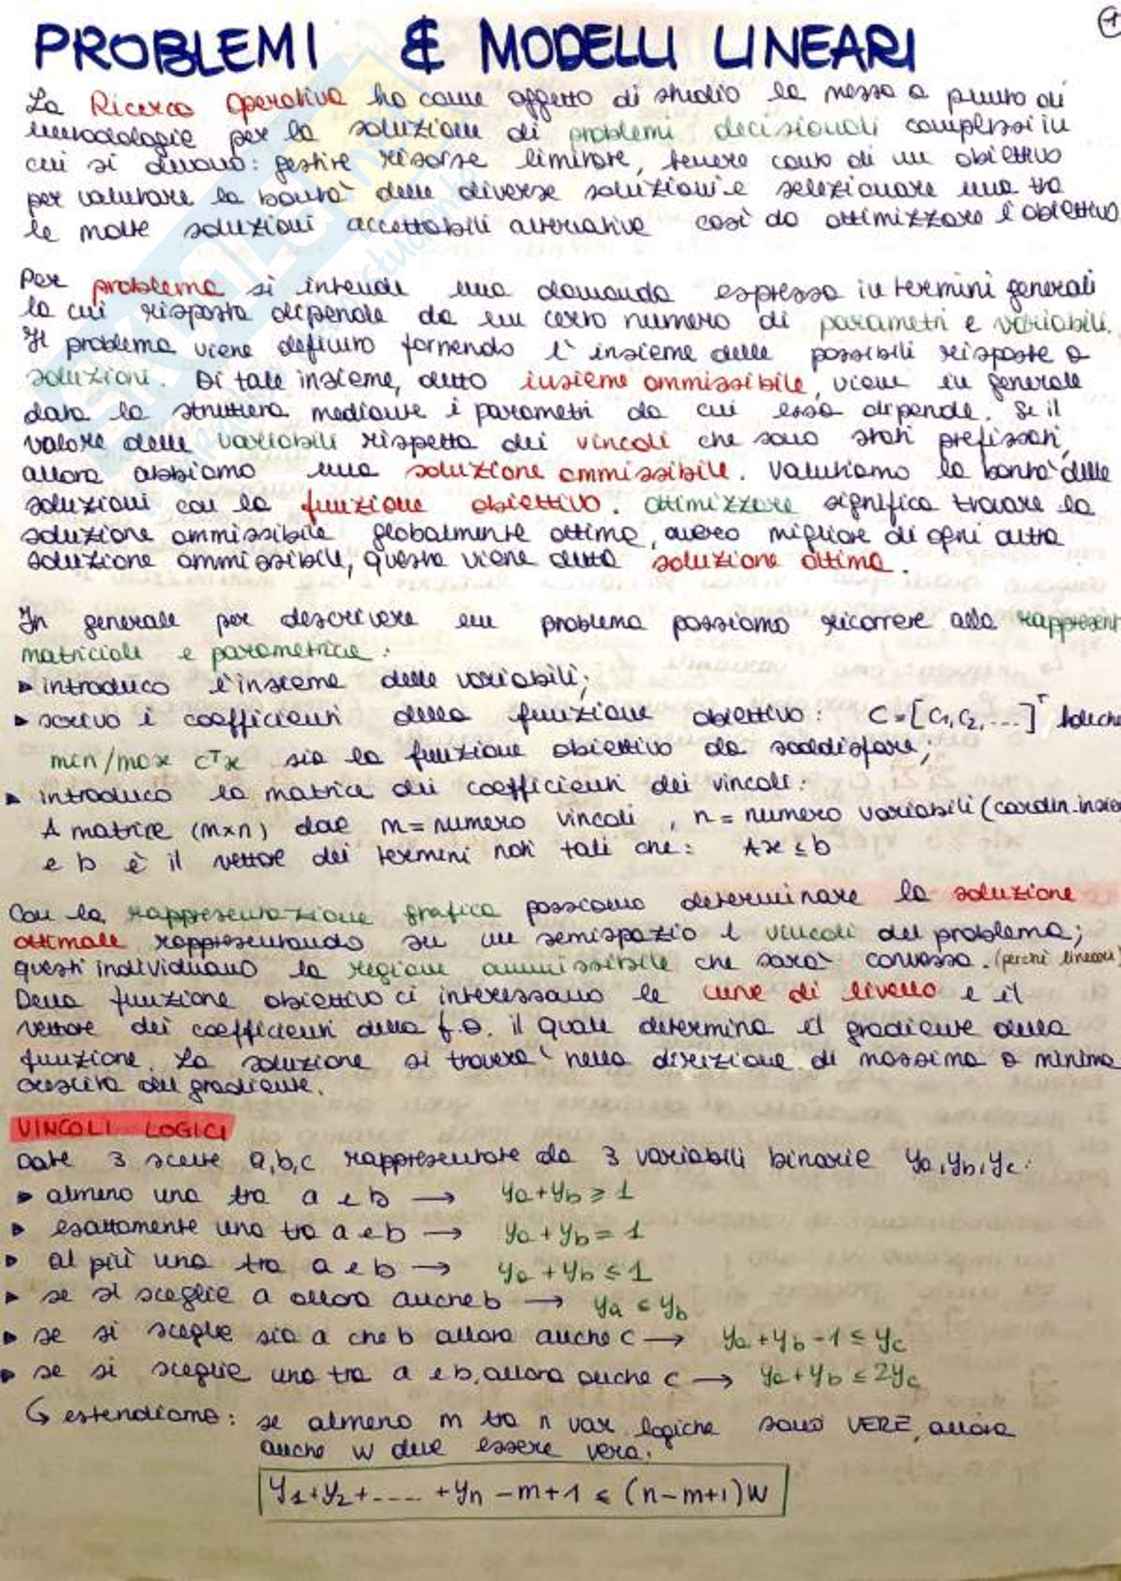 1
PROBLEMI & MODELLI LINEARI
La Ricerca Operativa ha come oggetto di studio la messa a punto di
metodologie per la soluzione di problemi decisionali complessi in
cui si devono: gestire risorse limitate, tenere conto di un obiettivo
per valutare la bontà delle diverse soluzioni e selezionare una tra
le molte soluzioni accettabili alternative così da ottimizzare l'obiettivo
Per problema si intende una domanda espressa in termini generali
la cui risposta dipende da un certo numero di parametri e variabili.
Il problema viene definito fornendo l'insieme delle possibili risposte o
soluzioni. Di tale insieme, detto insieme ammissibile, viene in generale
data la struttura mediante i parametri da cui esso dipende. Se il
valore delle variabili rispetta dei vincoli che sono stati prefissati,
allora abbiamo una soluzione ammissibile. Valutiamo la bontà delle
soluzioni con la funzione obiettivo. Ottimizzare significa trovare la
soluzione ammissibile globalmente ottima, ovvero migliore di ogni altra
soluzione ammissibile, questa viene detta soluzione ottima.
In generale per descrivere un problema possiamo ricorrere alla rappresent
matriciale e parametrica:
▸ introduco l'insieme delle variabili;
▸ scrivo i coefficienti della funzione obiettivo: C=[C1,C2,...]ᵀ tale che
min/max cᵀx sia la funzione obiettivo da soddisfare;
▸ introduco la matrice dei coefficienti dei vincoli:
A matrice (m×n) dove m= numero vincoli, n= numero variabili (cardin.insie
e b è il vettore dei termini noti tali che: Ax≤b
Con la rappresentazione grafica possiamo determinare la soluzione
ottimale rappresentando su un semispazio i vincoli del problema;
questi individuano la regione ammissibile che sarà convessa. (perché lineare)
Della funzione obiettivo ci interessano le curve di livello e il
vettore dei coefficienti della f.o. il quale determina il gradiente della
funzione. La soluzione si troverà nella direzione di massima o minima
crescita del gradiente.
VINCOLI LOGICI
Date 3 scelte a,b,c rappresentate da 3 variabili binarie ya,yb,yc:
▸ almeno una tra a e b → ya+yb≥1
▸ esattamente una tra a e b → ya+yb=1
▸ al più una tra a e b → ya+yb≤1
▸ se si sceglie a allora anche b → ya≤yb
▸ se si sceglie sia a che b allora anche c → ya+yb-1≤yc
▸ se si sceglie una tra a e b, allora anche c → ya+yb≤2yc
↳ estendiamo: se almeno m tra n var logiche sono VERE, allora
anche w deve essere vera.
y1+y2+.....+yn-m+1≤(n-m+1)w